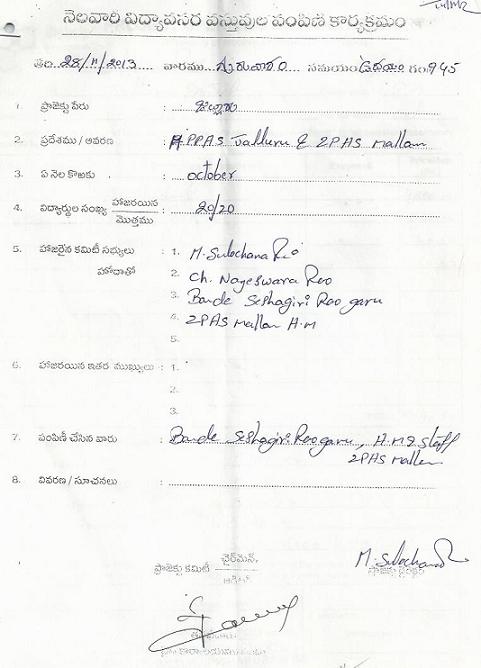 నెలవారి విద్యావసర వస్తువుల పంపిణి కార్యక్రమం
తేది: 28/11/2013 వారము గురువారం సమయం ఉదయం గం 9.45
1. ప్రాజెక్టు పేరు : జల్లూరు
2. ప్రదేశము / ఆవరణ : PPAS Jalluru & ZPHS Mallam
3. ఏ నెల కొఱకు : october
4. విద్యార్థుల సంఖ్య హాజరయిన : 20/20
మొత్తము
5. హాజరైన కమిటీ సభ్యులు : 1. M. Sulochana Rao
హోదాతో 2. Ch. Nageswara Rao
3. Bande Seshagiri Rao garu
4. ZPHS Mallam H.M
5.
6. హాజరయిన ఇతర ముఖ్యులు : 1.
2.
3.
7. పంపిణీ చేసిన వారు : Bande Seshagiri Rao garu, H.M & Staff
ZPHS Mallam
8. వివరణ / సూచనలు :
ఛైర్మెన్, M. Sulochana
ప్రాజెక్టు కమిటీ